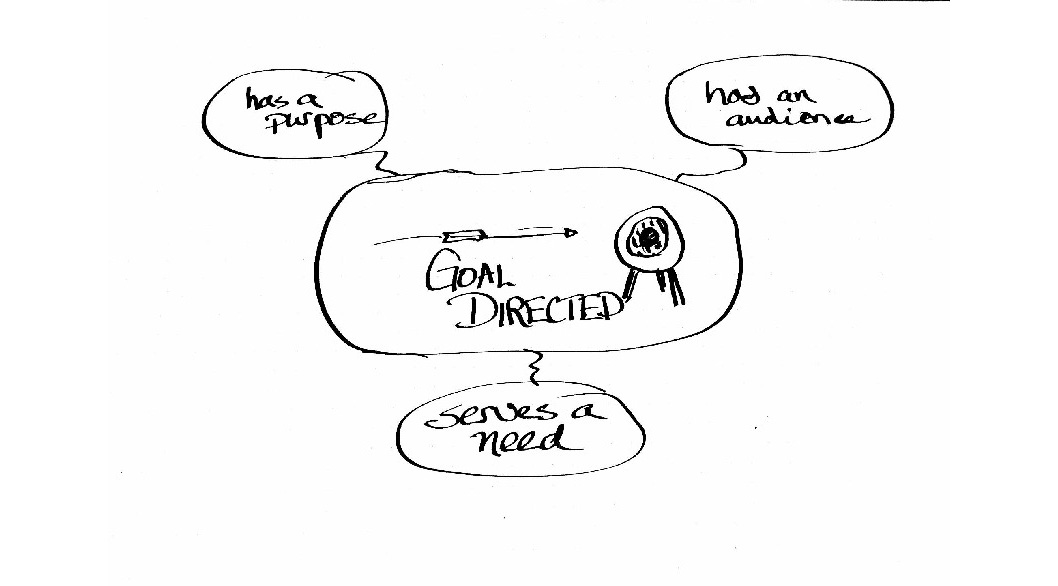 has a
purpose
has an
audience
GOAL
DIRECTED
serves a
need